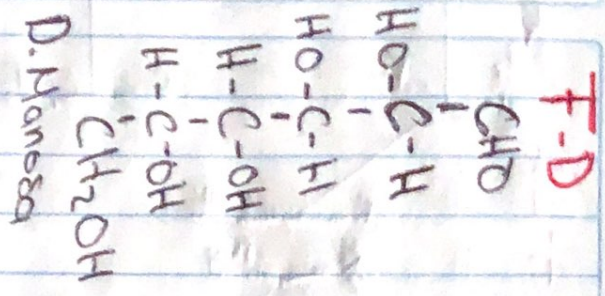 F-D
CHO
HO-C-H
HO-C-H
H-C-OH
H-C-OH
CH₂OH
D.Manosa